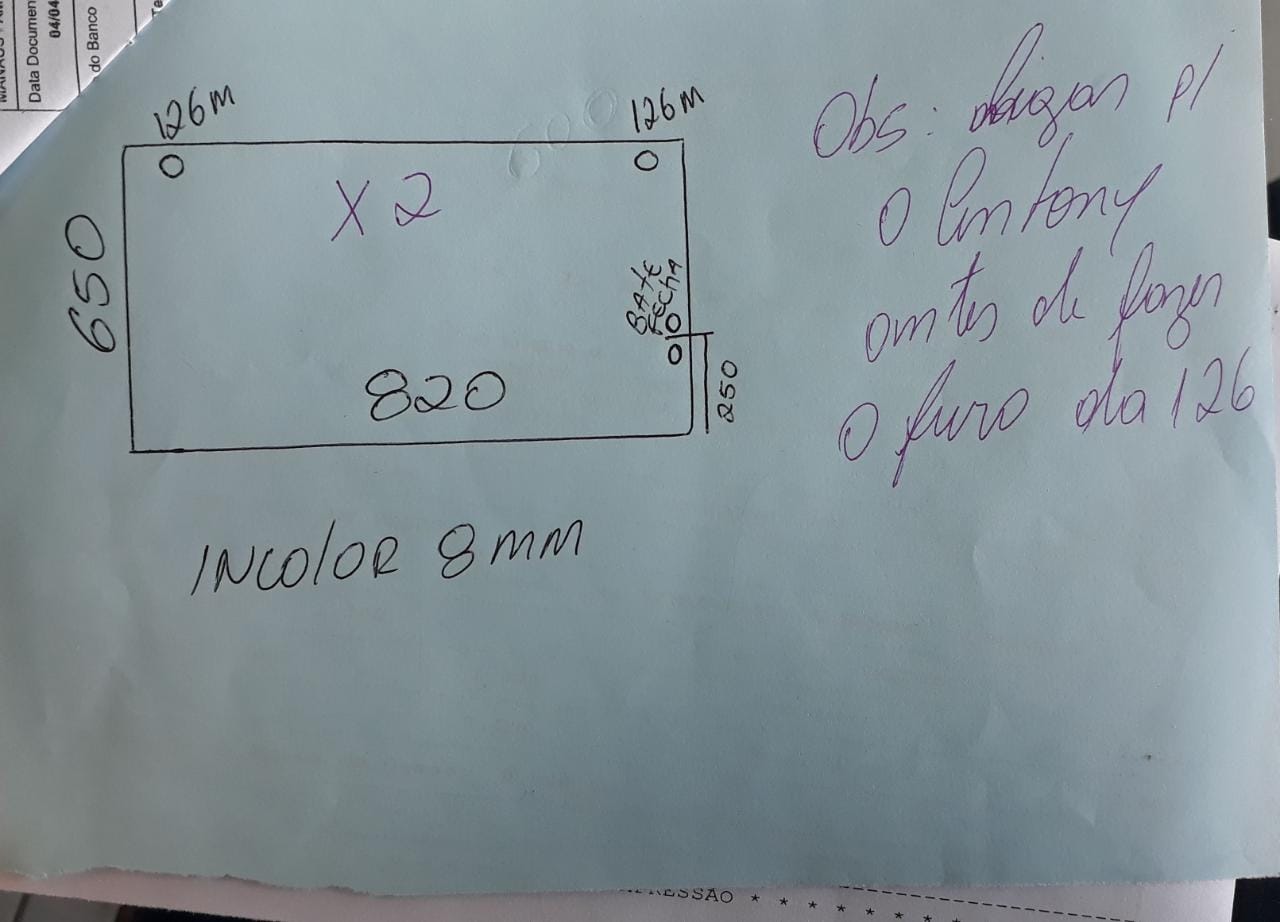 MANAUS - AM
Data Documen
04/04
do Banco
126M
126M
X2
650
BATE
FECHA
820
250
INCOlOR 8MM
Obs: p/
O Antony
antes de fazer
O furo da 126
* * * * * * *